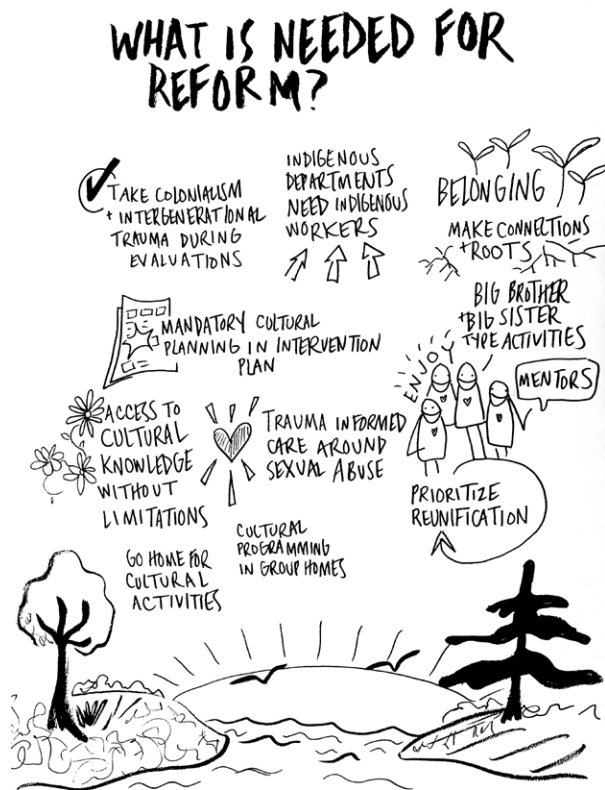 WHAT IS NEEDED FOR
REFORM?
TAKE COLONIALISM
+ INTERGENERATIONAL
TRAUMA DURING
EVALUATIONS
INDIGENOUS
DEPARTMENTS
NEED INDIGENOUS
WORKERS
BELONGING
MAKE CONNECTIONS
+ ROOTS
MANDATORY CULTURAL
PLANNING IN INTERVENTION
PLAN
BIG BROTHER
+ BIG SISTER
TYPE ACTIVITIES
ENJOY
MENTORS
ACCESS TO
CULTURAL
KNOWLEDGE
WITHOUT
LIMITATIONS
TRAUMA INFORMED
CARE AROUND
SEXUAL ABUSE
PRIORITIZE
REUNIFICATION
GO HOME FOR
CULTURAL
ACTIVITIES
CULTURAL
PROGRAMMING
IN GROUP HOMES